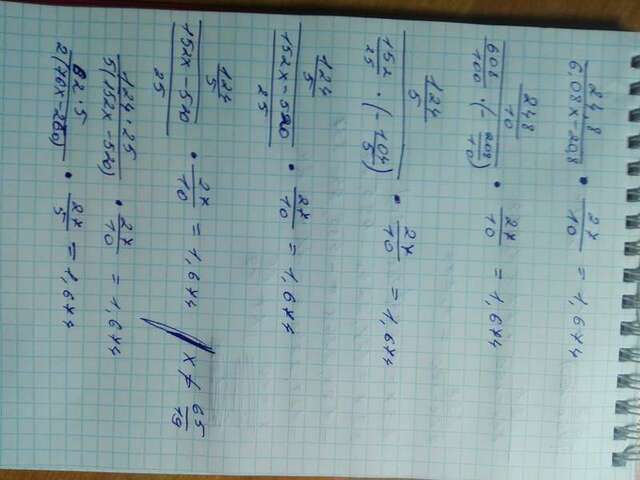 24,8/6,08x-20,8 · 27/10 = 1,674
248/10 / 608/100 · (-208/10) · 27/10 = 1,674
124/5 / 152/25 · (-104/5) · 27/10 = 1,674
124/5 / 152x-520/25 · 27/10 = 1,674
124/5 / 152x-520/25 · 27/10 = 1,674 / x ≠ 65/19
124·25/5(152x-520) · 27/10 = 1,674
62·5/2(76x-260) · 27/5 = 1,674